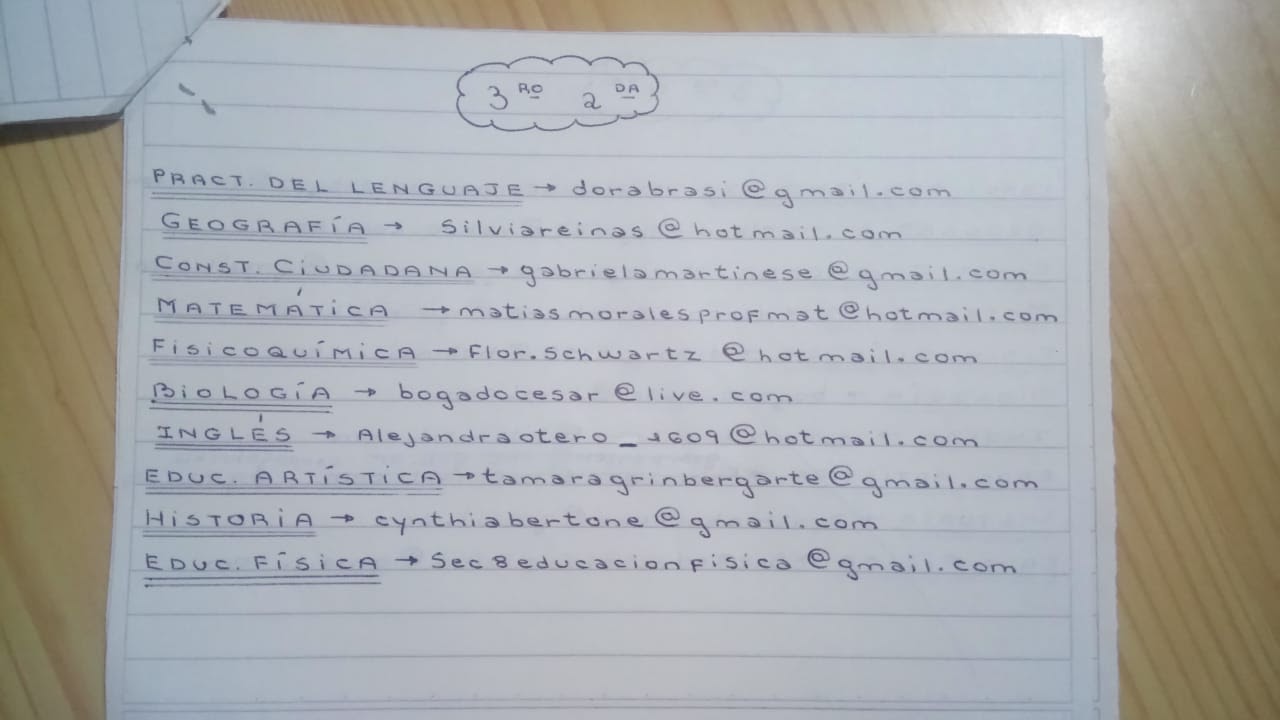 3 RO 2 DA
PRACT. DEL LENGUAJE → dorabrasi@gmail.com
GEOGRAFÍA → Silviareinas@hotmail.com
CONST. CIUDADANA → gabrielamartinese@gmail.com
MATEMÁTICA → matiasmoralesprofmat@hotmail.com
FISICOQUÍMICA → Flor.Schwartz@hotmail.com
BIOLOGÍA → bogadocesar@live.com
INGLÉS → Alejandraotero_1609@hotmail.com
EDUC. ARTÍSTICA → tamaragrinbergarte@gmail.com
HISTORIA → cynthiabertone@gmail.com
EDUC. FÍSICA → Sec8educacionfisica@gmail.com